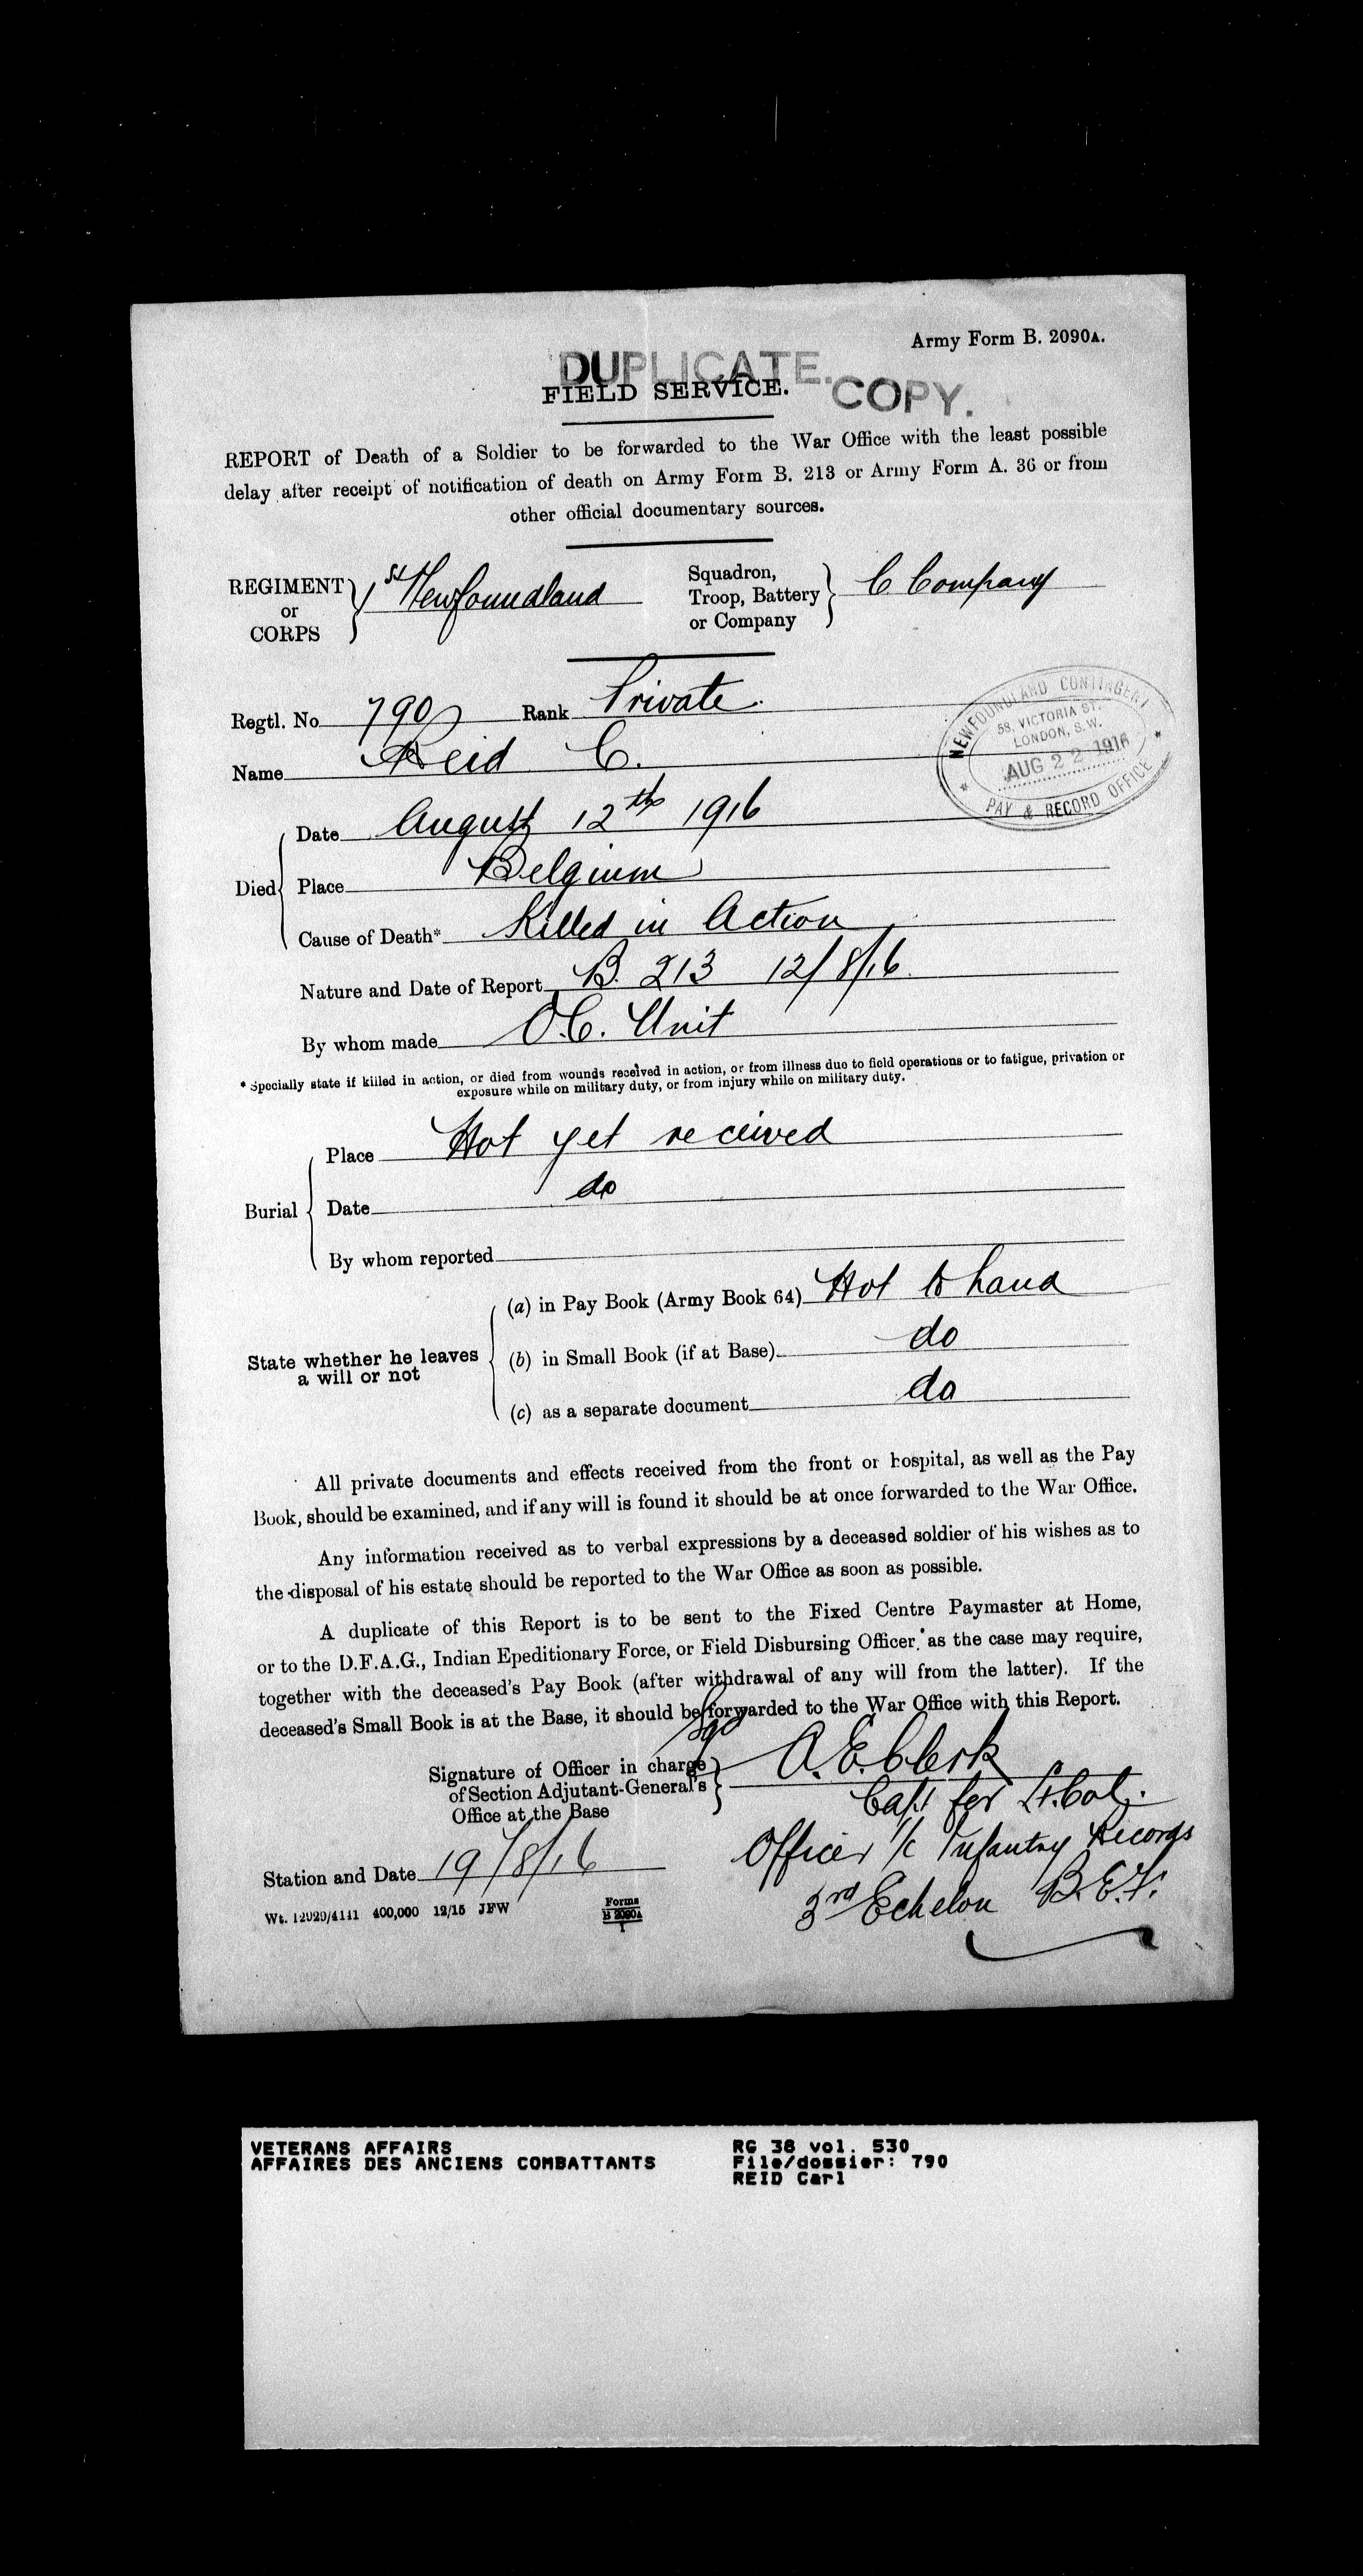 Army Form B. 2090A.
DUPLICATE.
FIELD SERVICE.
COPY.
REPORT of Death of a Soldier to be forwarded to the War Office with the least possible
delay after receipt of notification of death on Army Form B. 213 or Army Form A. 36 or from
other official documentary sources.
REGIMENT or CORPS } 1st Newfoundland
Squadron, Troop, Battery or Company } C Company
Regtl. No. 790 Rank Private.
Name Reid C.
NEWFOUNDLAND CONTINGENT
58, VICTORIA ST.
LONDON, S.W.
AUG 22 1916
* PAY & RECORD OFFICE *
Died { Date August 12th 1916
Place Belgium
Cause of Death* Killed in Action
Nature and Date of Report B. 213 12/8/16.
By whom made O.C. Unit
* Specially state if killed in action, or died from wounds received in action, or from illness due to field operations or to fatigue, privation or
exposure while on military duty, or from injury while on military duty.
Burial { Place Not yet received
Date do
By whom reported
State whether he leaves a will or not { (a) in Pay Book (Army Book 64) Not to hand
(b) in Small Book (if at Base) do
(c) as a separate document do
All private documents and effects received from the front or hospital, as well as the Pay
Book, should be examined, and if any will is found it should be at once forwarded to the War Office.
Any information received as to verbal expressions by a deceased soldier of his wishes as to
the disposal of his estate should be reported to the War Office as soon as possible.
A duplicate of this Report is to be sent to the Fixed Centre Paymaster at Home,
or to the D.F.A.G., Indian Epeditionary Force, or Field Disbursing Officer, as the case may require,
together with the deceased's Pay Book (after withdrawal of any will from the latter). If the
deceased's Small Book is at the Base, it should be forwarded to the War Office with this Report.
Signature of Officer in charge
of Section Adjutant-General's
Office at the Base
Sgd A. E. Clerk
Capt for Lt. Col.
Officer i/c Infantry Records
3rd Echelon B.E.F.
Station and Date 19/8/16
Wt. 12929/4141 400,000 12/15 JFW
Forms
B 2090A
1
VETERANS AFFAIRS
AFFAIRES DES ANCIENS COMBATTANTS
RG 38 vol. 530
File/dossier: 790
REID Carl